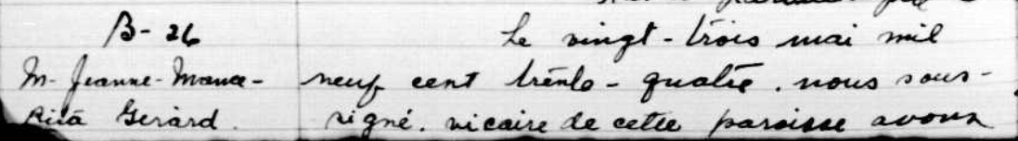 B-26
M-Jeanne-Mance-
Rita Gérard.
Le vingt-trois mai mil
neuf cent trente-quatre, nous sous-
signé, vicaire de cette paroisse avons